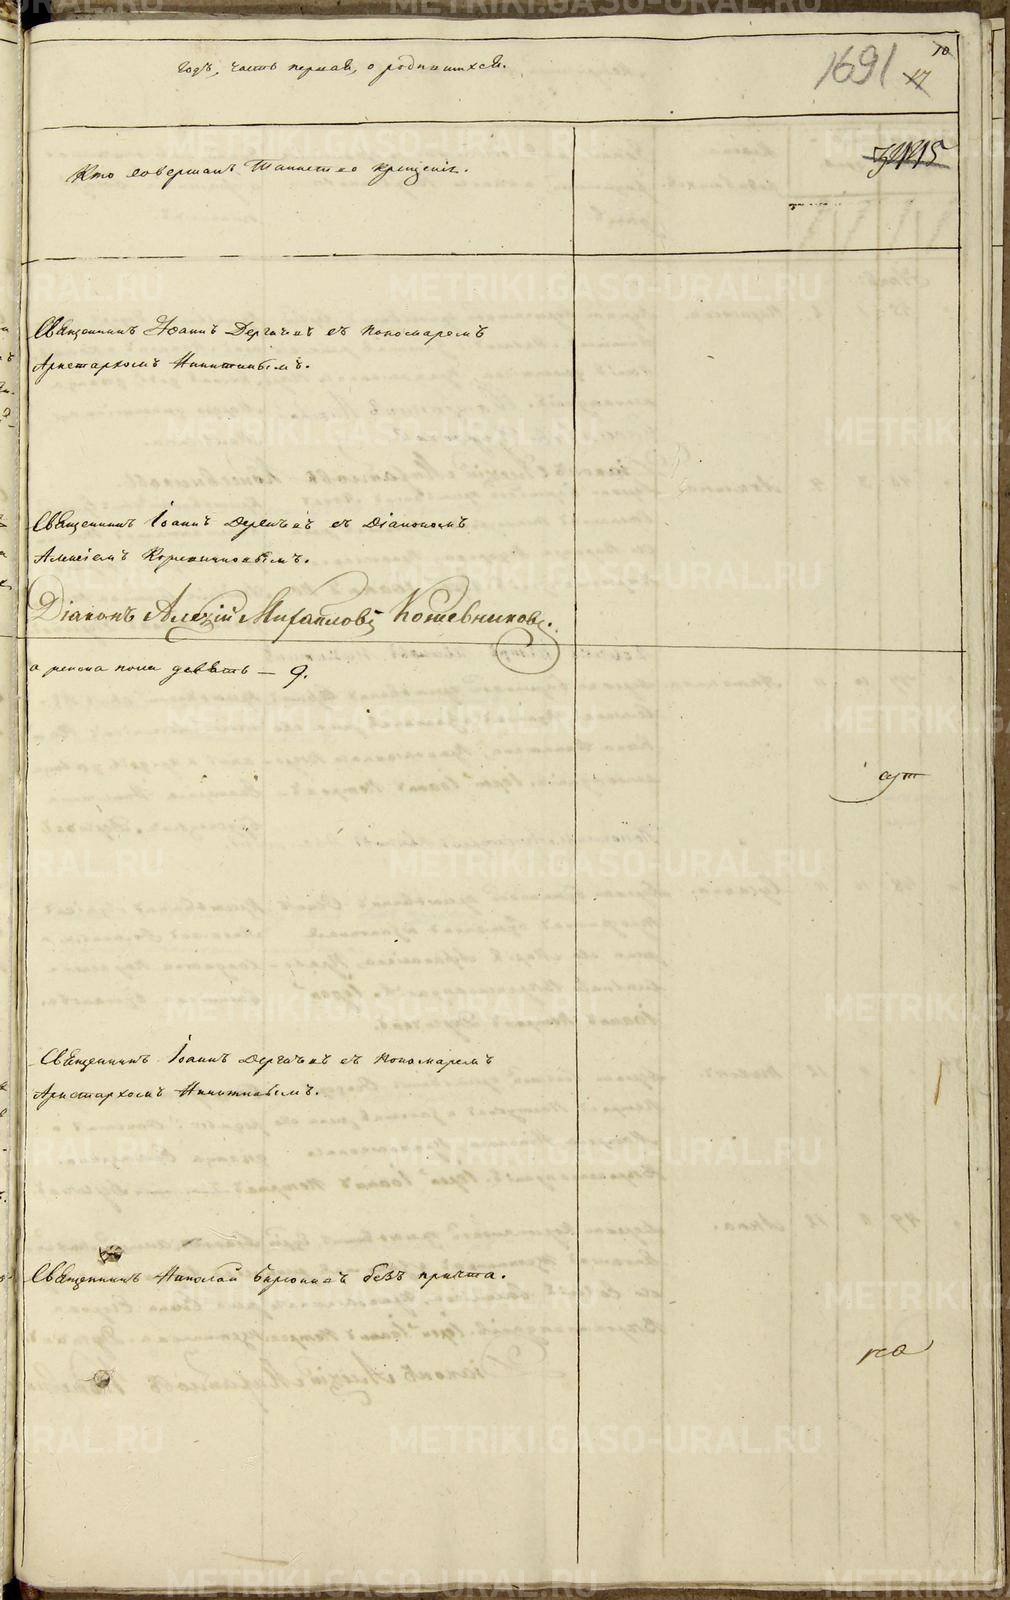 годъ, часть первая, о родившихся.
1691
10
17
Кто совершалъ Таинство крещенія.
Священникъ Іоаннъ Дергачевъ съ пономаремъ
Аристархомъ Никитинымъ.
Священникъ Іоаннъ Дергачевъ съ Діакономъ
Алексіемъ Кожевниковымъ.
Діаконъ Алексій Михайловъ Кожевниковъ.
а женска пола девять — 9.
Священникъ Іоаннъ Дергачевъ съ пономаремъ
Аристархомъ Никитинымъ.
Священникъ Николай без причта.
METRIKI.GASO-URAL.RU